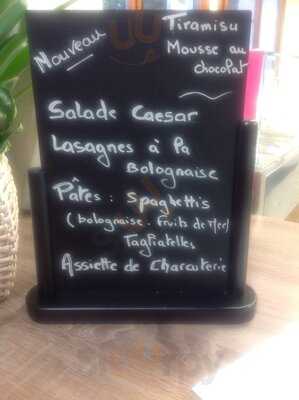 Nouveau
Tiramisu
Mousse au
chocolat
Salade Caesar
Lasagnes à la
Bolognaise
Pâtes : Spaghettis
(bolognaise. fruits de Mer)
Tagliatelles
Assiette de Charcuterie